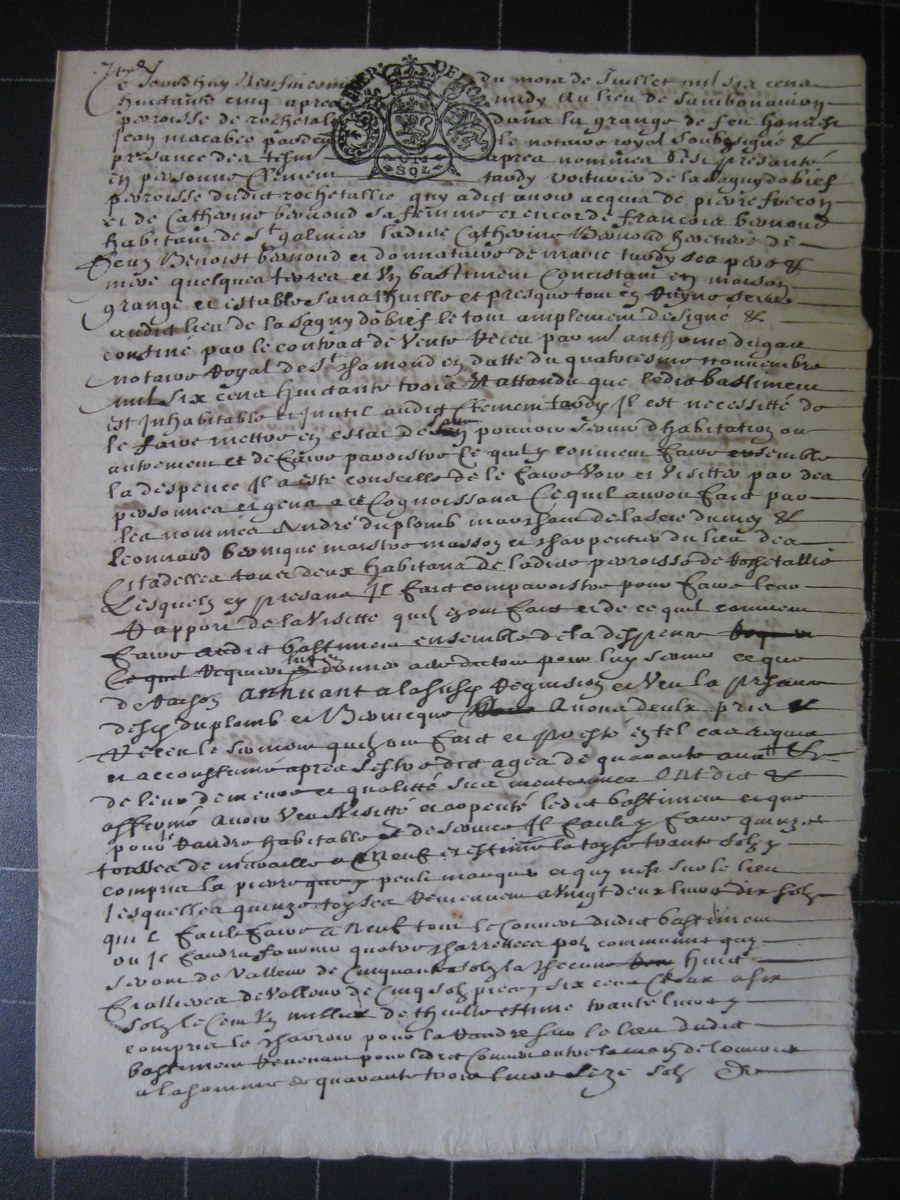 Ce Jourdhuy neufviesme du mois de Juillet mil six cens
huictante cinq apres midy au lieu de
parroisse de rochetal dans la grange de feu
Jean macabeo le notaire royal soubsigné &
presance des apres nommes presanté
en personne Clement tardy voiturier de la sagnydobief
parroisse dudict rochetallie quy a dict avoir acquis de pierre
et de Catherine bernoud sa femme et encor de francois bernoud
habitans de St galmier ladite Catherine bernoud heretiere de
feuz Benoist bernoud et donnataire de marie tardy ses pere &
mere quelques terres et un bastiment concistant en maison
grange et estable sans thuille et presque tout en ruyne
audict lieu de la sagnydobief le tout amplement designé &
confiné par le contract de vente receu par me anthoine dugas
notaire royal de St chamond en datte du quatriesme novembre
mil six cens huictante trois attandu que ledict bastiment
est inhabitable et inutil audict Clement tardy il est necessitté de
le faire mettre en estat de pouvoir servir d'habitation ou
autrement et de faire paroistre ce quil y convient faire ensemble
la despence il a esté conseillé de le faire voir et visitter par des
personnes et gens a ce cognoissans ce quil auroit faict par
les nommes André duplomb marchant de &
Leonnard bernique maistre masson et charpentier du lieu des
Citadelles tous deux habitans de ladite parroisse de Rochetallié
Lesquels en presans il faict comparoistre pour faire leur
Rapport de la visitte quilz ont faict et de ce quil convient
faire audict bastiment ensemble de la despence
donner acte du tout pour luy servir ce que
de raison annuant a la susd Requisition et veu la presance
desd duplomb et bernicque avons deulx pris &
receu le serment quilz ont faict et presté en tel cas requis
et accoustumé apres sestre dict ages de quarante ans
de leur demeure et quallitté sus mentionnee ont dict &
affirmé avoir veu visitté et arpenté ledict bastiment et que
pour le randre habitable et de service il fault y faire quinze
toizes de muraille a neuf et estimé la toyse trante solz y
compris la pierre que y peult manquer et quy nest sur le lieu
lesquelles quinze toyses reviennent a vingt deux livres dix solz
qu'il fault faire a neuf tout le couvert dudict bastiment
ou il faudra fournir quatre charrettees poz communne quy
seront de valleur de cinquante solz la checune huict
de valleur de cinq solz piece six cens cloux a six
solz le cent un millier de thuille estimé trante livres y
compris le charroir pour la randre sur le lieu dudict
bastiment revenant pour ledict couvert outre la main de louvrier
a la somme de quarante trois livres seze solz &